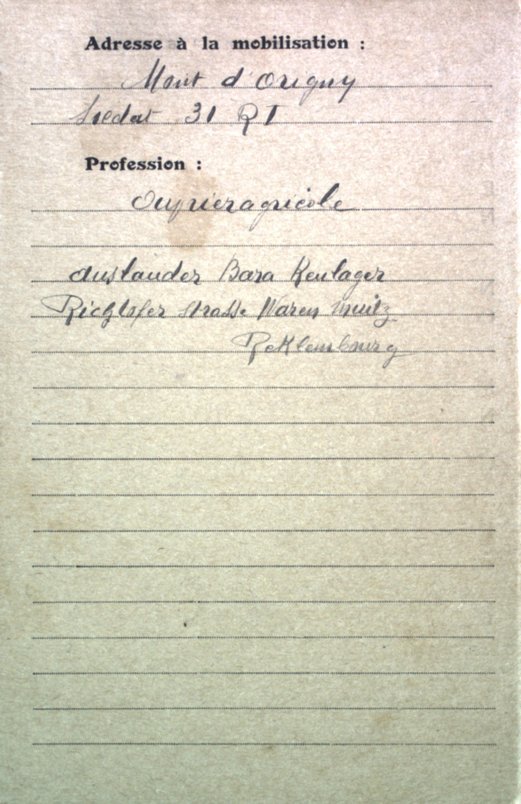 Adresse à la mobilisation :
Mont d Origny
Soldat 31 R I
Profession :
Ouvrier agricole
auslander Bara Kenlager
Richtofer strasse Waren Muitz
Reklembourg